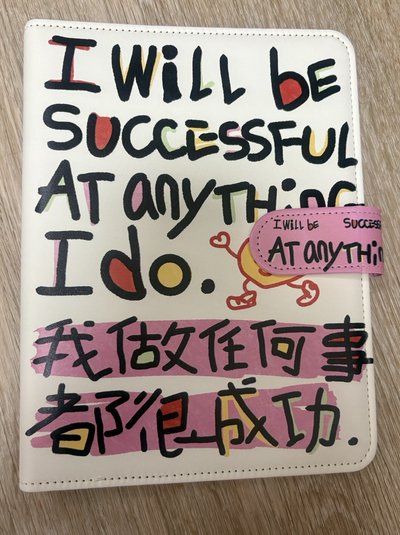 I WILL bE
SUCCESSFUL
AT anyTHing
I do.
I WILL bE SUCCESS
AT anyTHin
我做任何事
都很成功.